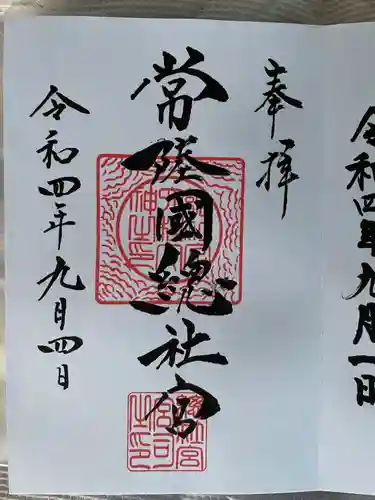 奉拝
常陸國總社宮
令和四年九月四日
令和四年九月一日